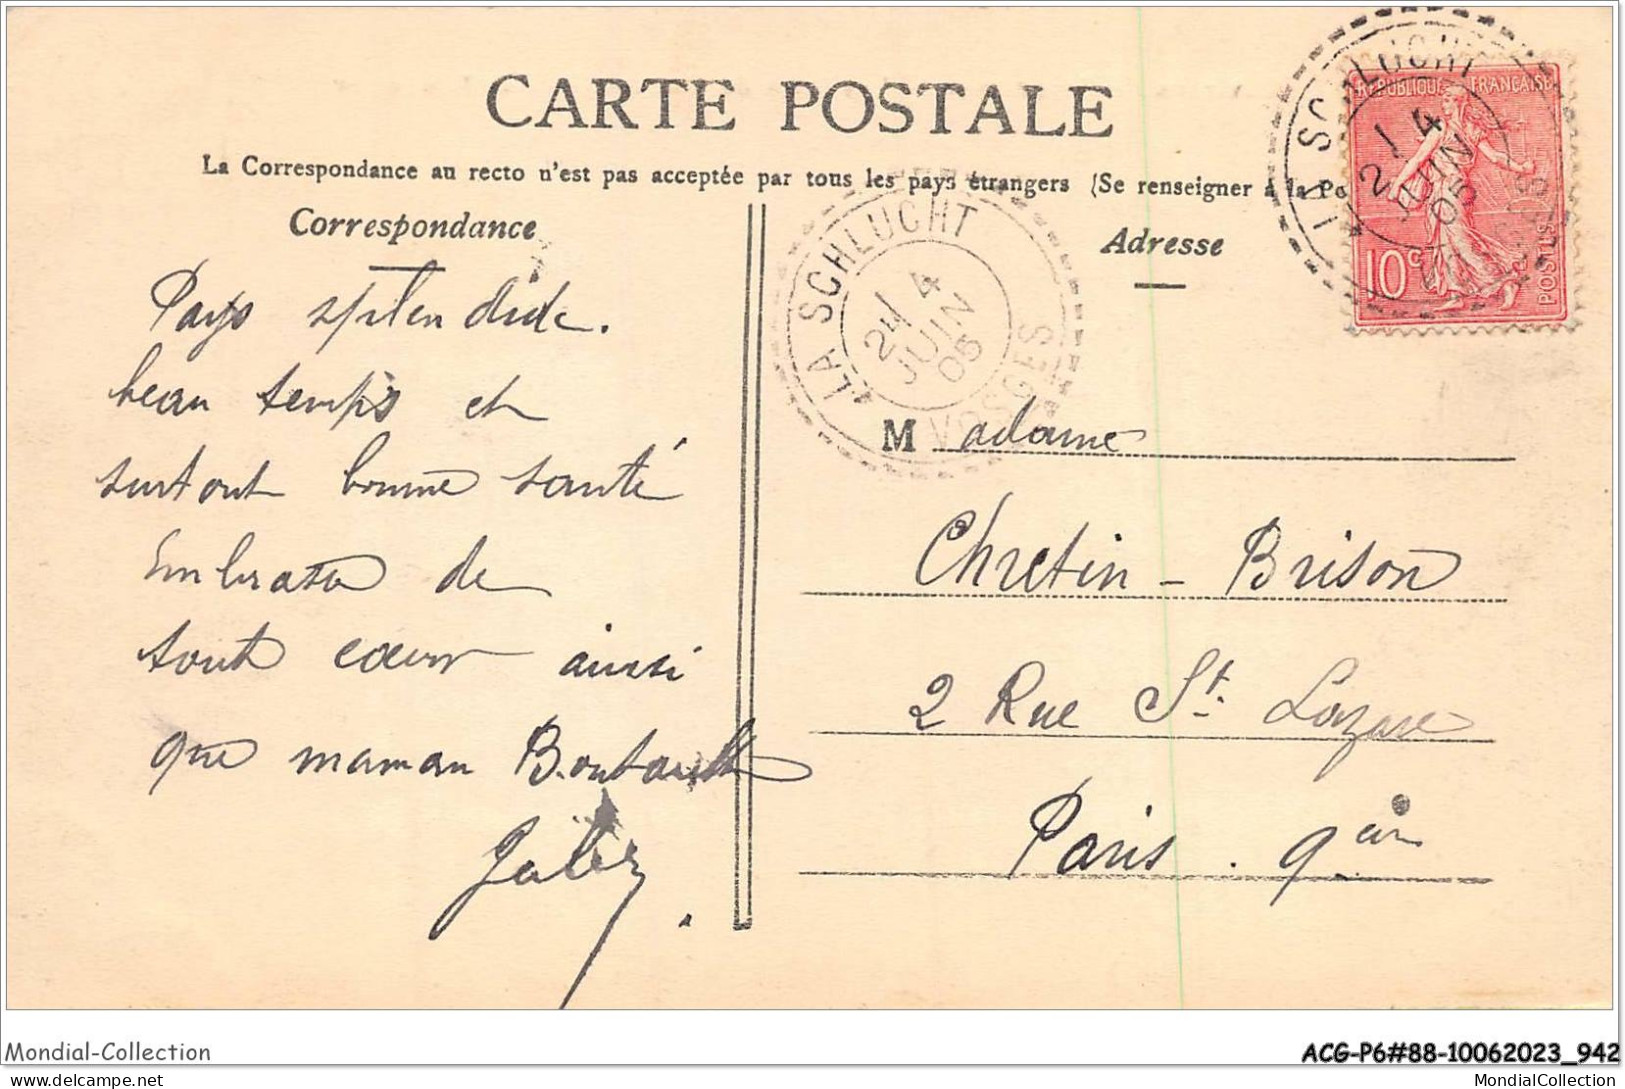 CARTE POSTALE
La Correspondance au recto n'est pas acceptée par tous les pays étrangers (Se renseigner à la Po
Correspondance
Adresse
LA SCHLUCHT
24 / 4
JUIN
05
VOSGES
LA SCHLUCHT
2 / 4
JUIN
05
VOSGES
REPUBLIQUE FRANÇAISE
10c
POSTES
Pays splendide.
beau temps et
surtout bonne santé
de
tout coeur ainsi
que maman Boutault
Madame
Chretin - Brison
2 Rue St. Lazare
Paris . 9air
Mondial-Collection
ACG-P6#88-10062023_942
delcampe.net
MondialCollection